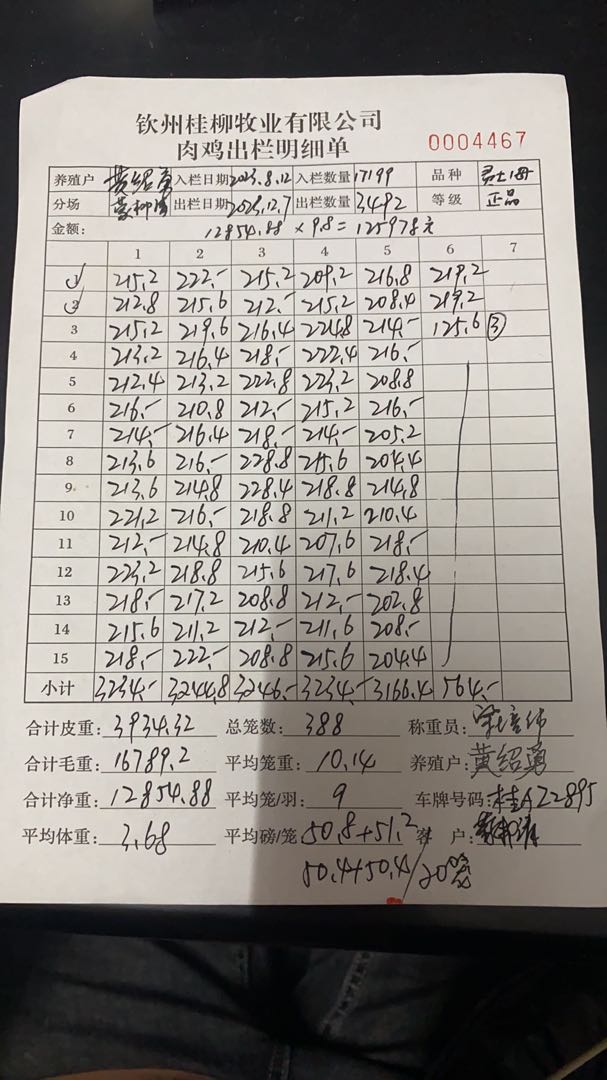 钦州桂柳牧业有限公司
肉鸡出栏明细单 0004467
养殖户 黄绍勇 入栏日期 2023.8.12 入栏数量 17199 品种
分场 出栏日期 2023.12.7 出栏数量 3492 等级 正品
金额: 12854.88 × 9.8 = 125978元
1 2 3 4 5 6 7
1 215.2 222.- 215.2 209.2 216.8 219.2
2 212.8 215.6 212.- 215.2 208.4 219.2
3 215.2 219.6 216.4 224.8 214.- 125.6 ③
4 213.2 216.4 218.- 222.4 216.-
5 212.4 213.2 222.8 223.2 208.8
6 216.- 210.8 212.- 215.2 216.-
7 214.- 216.4 218.- 214.- 205.2
8 213.6 216.- 228.8 215.6 204.4
9 213.6 214.8 228.4 218.8 214.8
10 221.2 216.- 218.8 211.2 210.4
11 212.- 214.8 210.4 207.6 218.-
12 223.2 218.8 215.6 217.6 218.4
13 218.- 217.2 208.8 212.- 202.8
14 215.6 211.2 212.- 211.6 208.-
15 218.- 222.- 208.8 215.6 204.4
小计 3234.- 3244.8 3246.- 3234.- 3166.4 564.-
合计皮重: 3934.32 总笼数: 388 称重员:
合计毛重: 16789.2 平均笼重: 10.14 养殖户: 黄绍勇
合计净重: 12854.88 平均笼/羽: 9 车牌号码: 桂AZ2895
平均体重: 3.68 平均磅/笼 50.8+51.2 客 户:
50.4+50.4/20笼